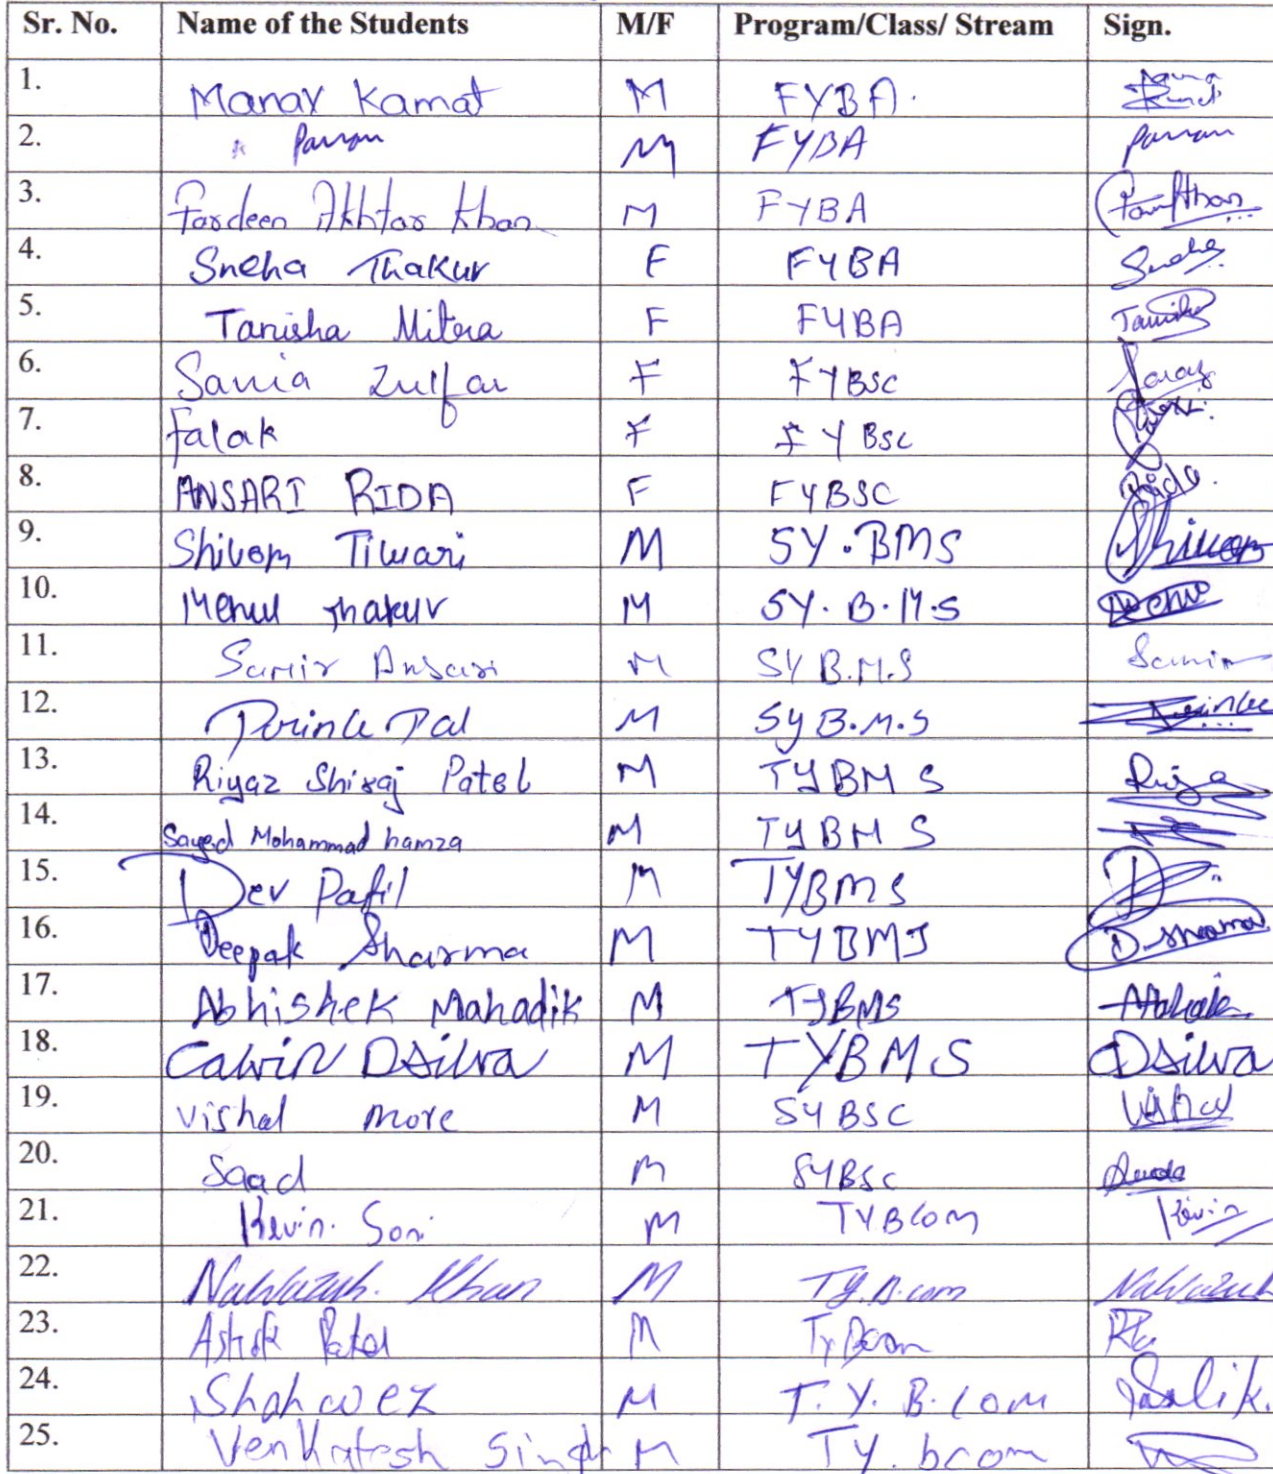 Sr. No. Name of the Students M/F Program/Class/ Stream Sign.
1. Manav Kamat M FYBA.
2. M FYBA
3. Fardeen Akhtar Khan M FYBA
4. Sneha Thakur F FYBA Sneha
5. Tanisha Mitra F FYBA Tanisha
6. Sania Zulfar F FYBSC
7. Falak F FYBsc
8. ANSARI RIDA F FYBSC Rida.
9. Shivom Tiwari M SY.BMS Shivom
10. Mehul Thakur M SY.B.M.S Mehul
11. Samir Ansari M SY B.M.S Samir
12. Prince Pal M SY B.M.S
13. Riyaz Shiraj Patel M TYBMS Riyaz
14. Sayed Mohammad hamza M TYBMS
15. Dev Patil M TYBMS
16. Deepak Sharma M TYBMS D.Sharma
17. Abhishek Mahadik M TYBMS
18. Calvin Dsilva M TYBMS Dsilva
19. Vishal more M SYBSC Vishal
20. Saad M SYBSC
21. Kevin. Soni M TYBCOM Kevin
22. Khan M TY.B.com
23. Ashok Patel M Ty Bcom
24. Shahwez M T.Y.B.com
25. Venkatesh Singh M TY.bcom